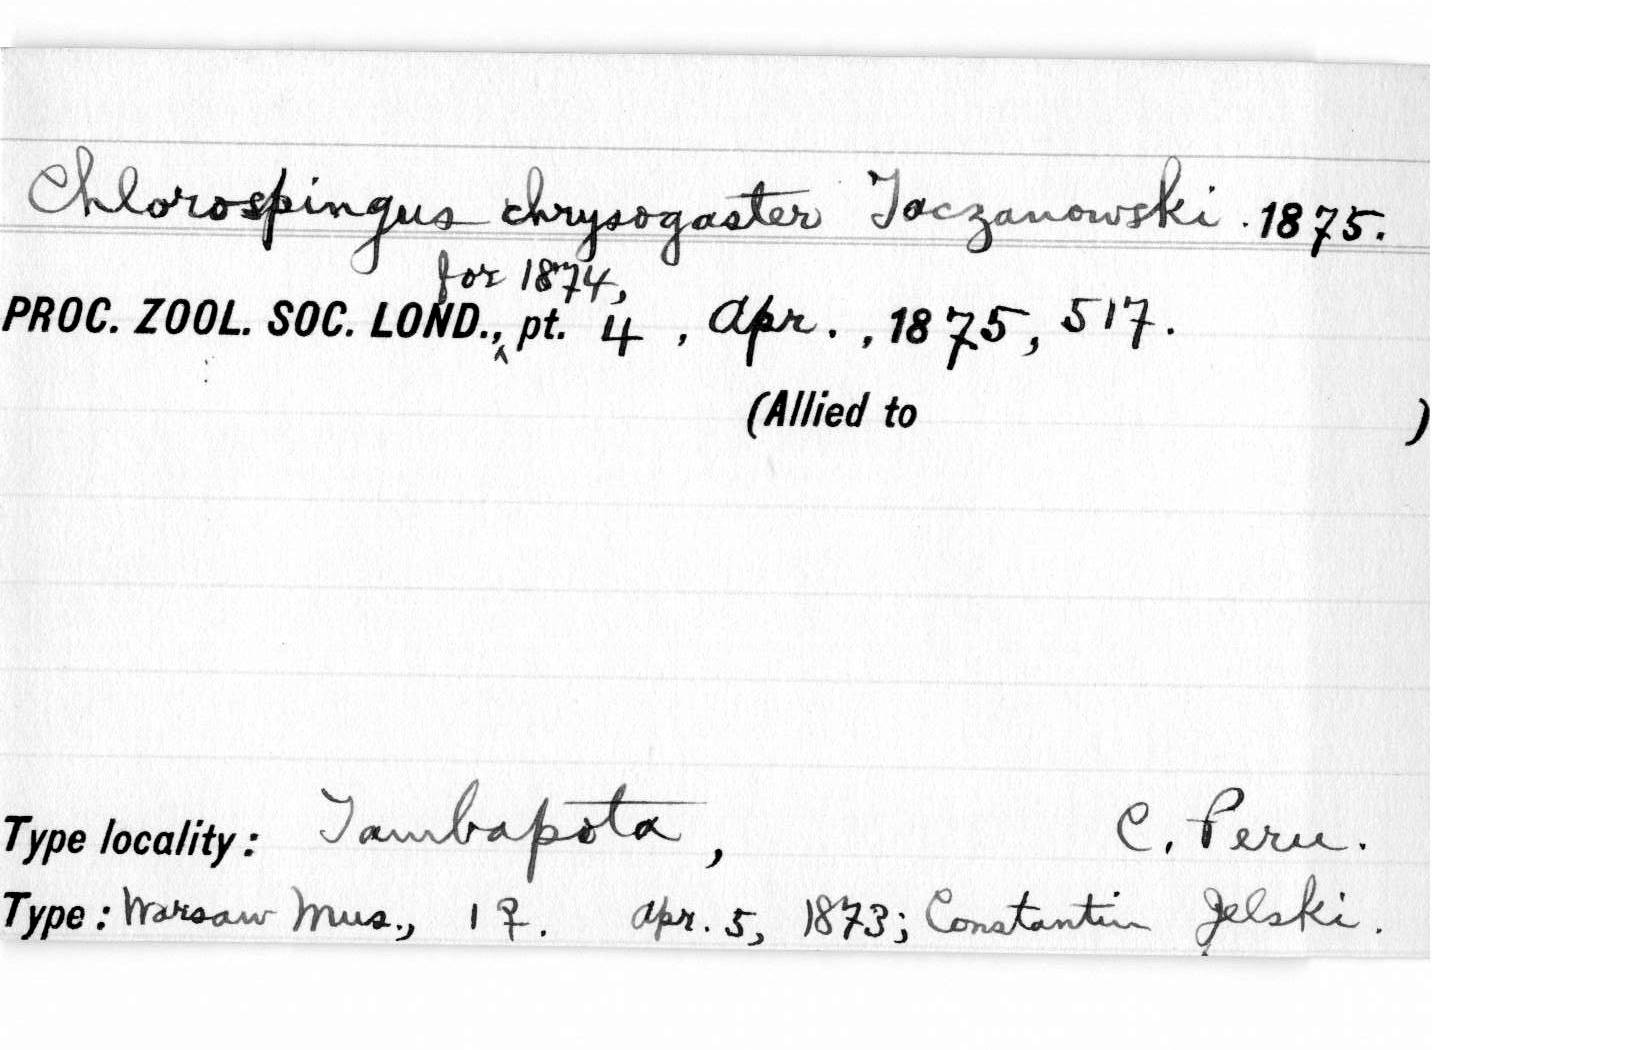 Chlorospingus chrysogaster Taczanowski. 1875.
for 1874,
PROC. ZOOL. SOC. LOND., ^ pt. 4, Apr., 1875, 517.
(Allied to )
Type locality: Tambapata, C. Peru.
Type: Warsaw Mus., 1 ♀. Apr. 5, 1873; Constantin Jelski.